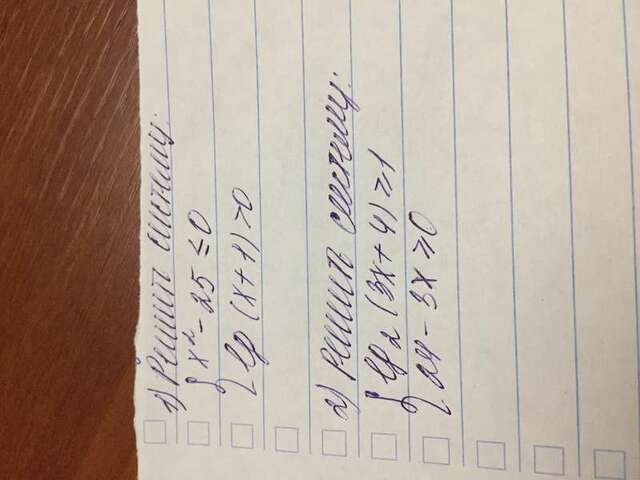 1) Решить систему:
{ x² - 25 ≤ 0
lg (x + 1) > 0
2) Решить систему:
{ lg₂ (3x + 4) ≥ 1
24 - 3x ≥ 0